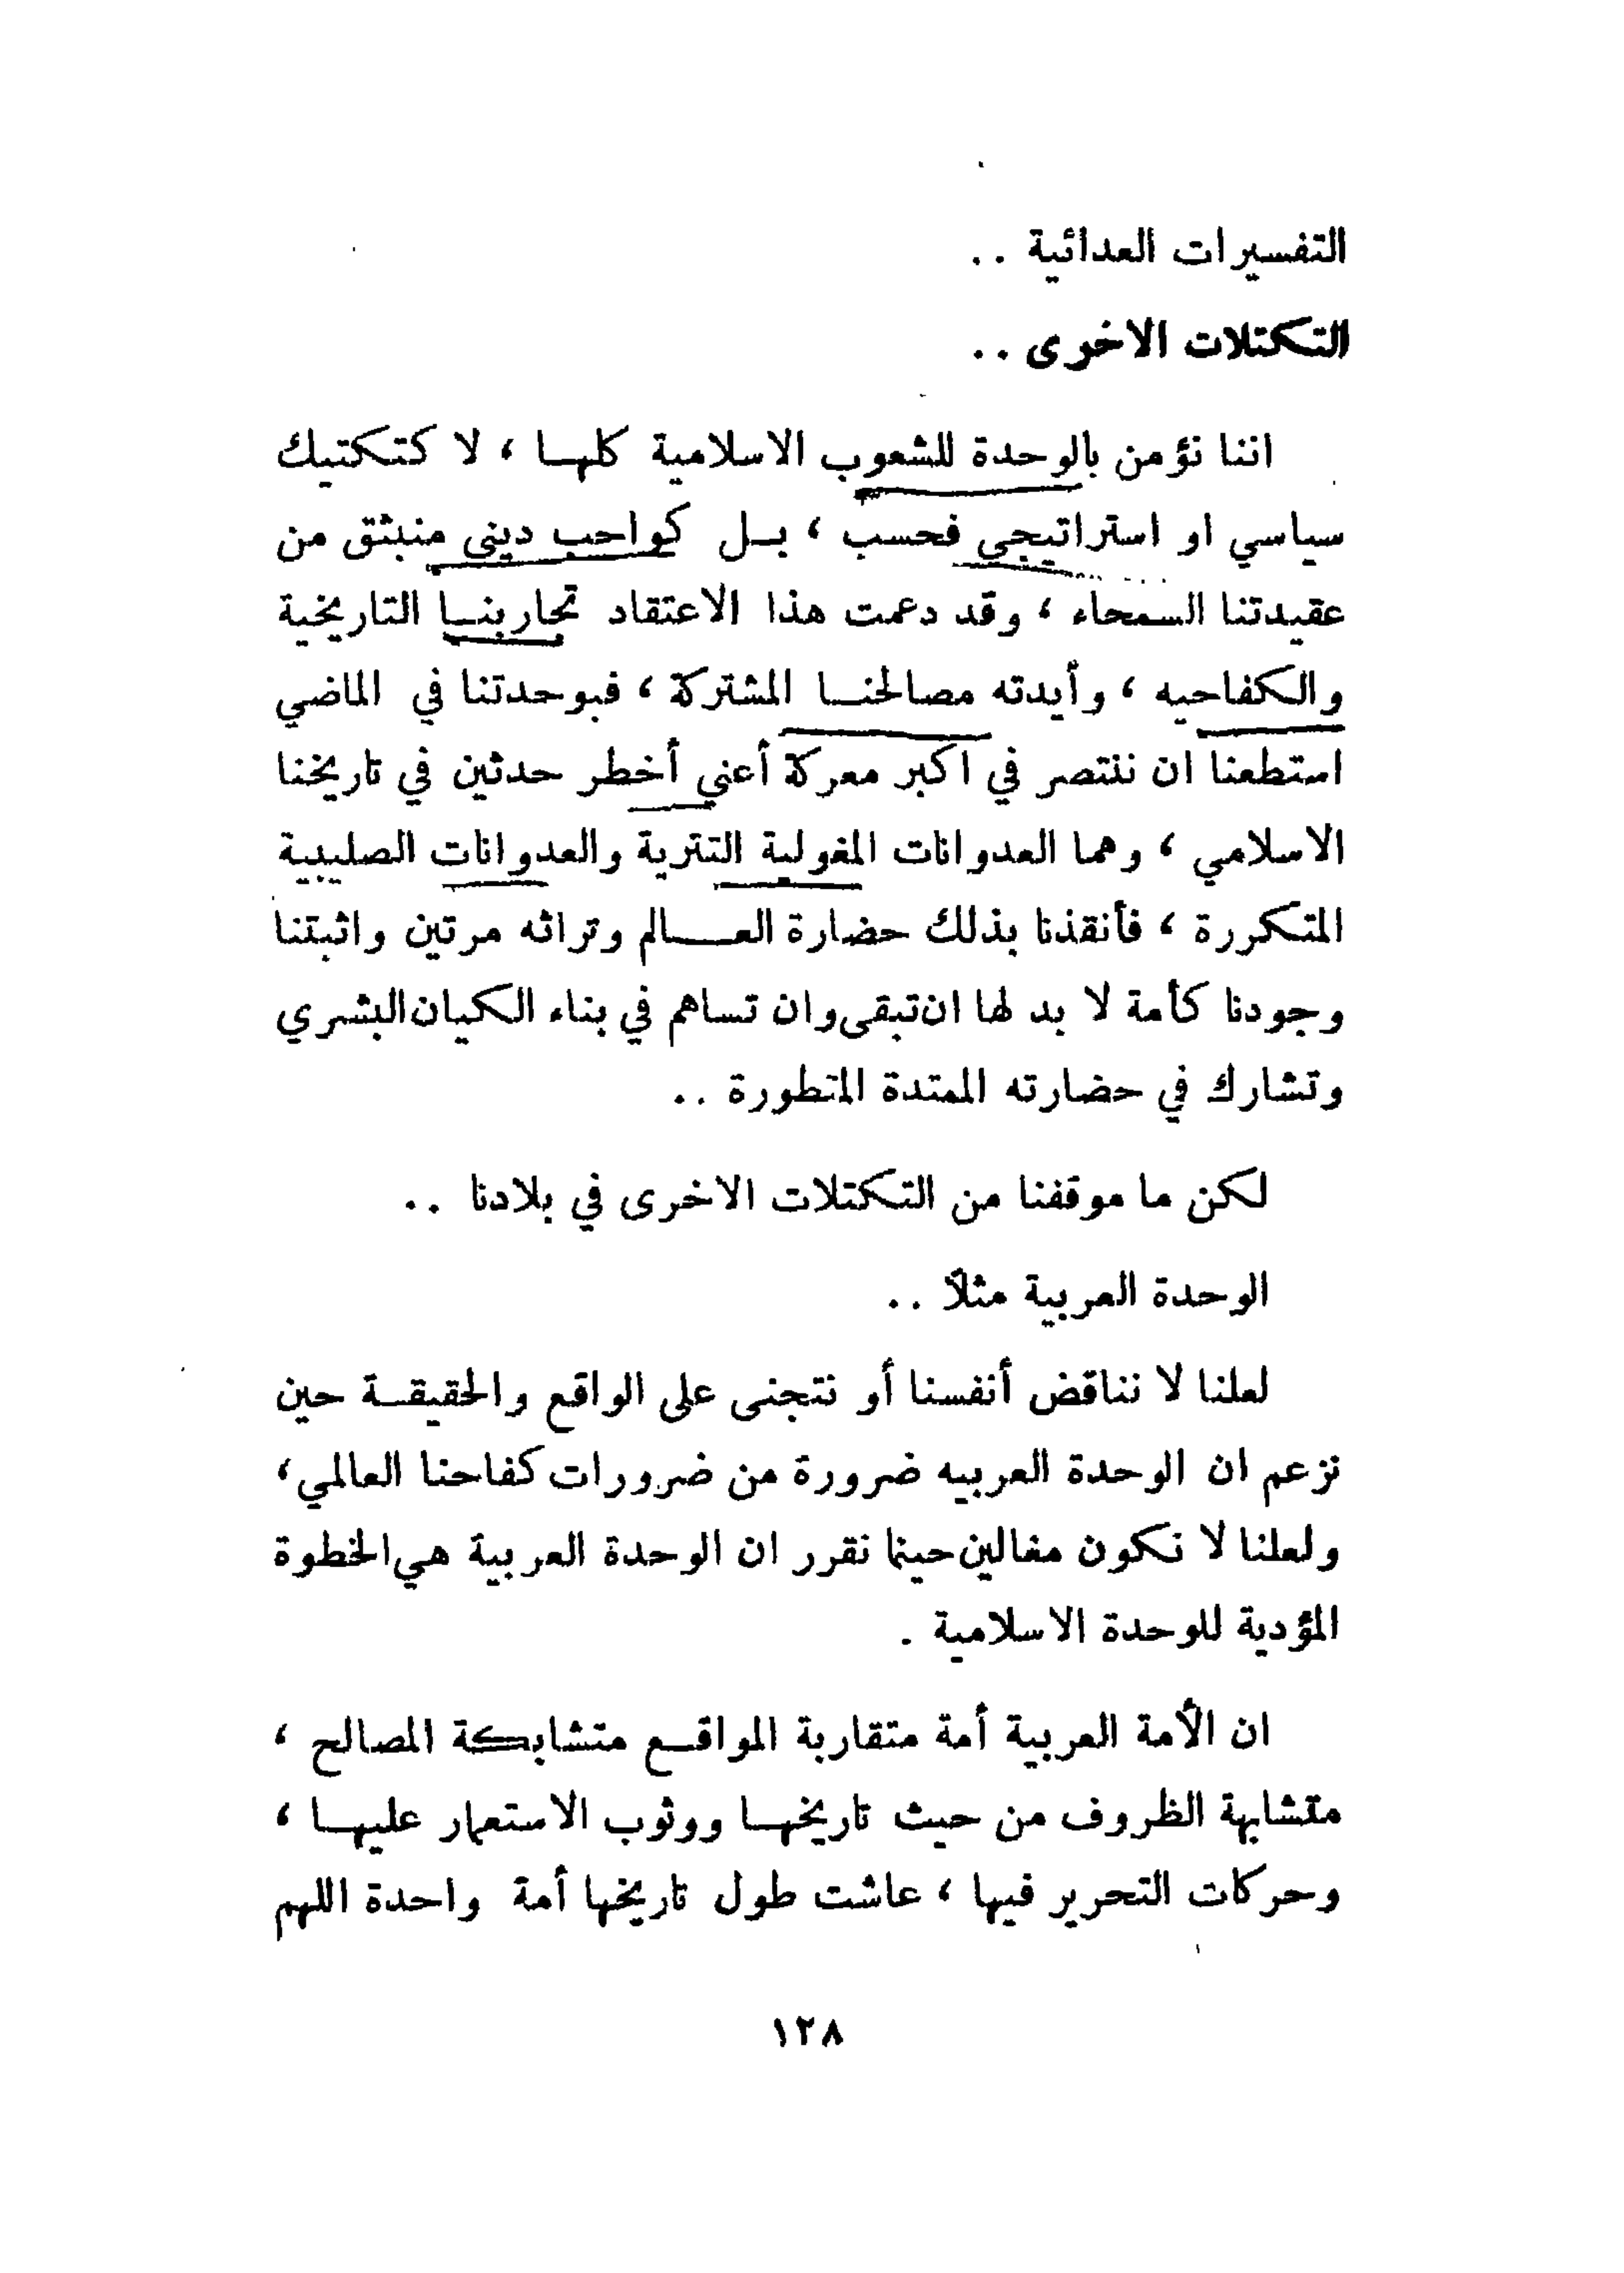 التفسيرات العدائية ..
التكتلات الاخرى ..
اننا نؤمن بالوحدة للشعوب الاسلامية كلهـا ، لا كتكتيك
سياسي او استراتيجي فحسب ، بـل كواجب ديني منبثق من
عقيدتنا السمحاء ، وقد دعمت هذا الاعتقاد تجاربنـا التاريخية
والكفاحيه ، وأيدته مصالحنـا المشتركة ، فبوحدتنا في الماضي
استطعنا ان ننتصر في اكبر معركة أعني أخطر حدثين في تاريخنا
الاسلامي ، وهما العدوانات المغولية التترية والعدوانات الصليبية
المتكررة ، فأنقذنا بذلك حضارة العـــالم وتراثه مرتين واثبتنا
وجودنا كأمة لا بد لها ان تبقى وان تساهم في بناء الكيان البشري
وتشارك في حضارته الممتدة المتطورة ..
لكن ما موقفنا من التكتلات الاخرى في بلادنا ..
الوحدة العربية مثلاً ..
لعلنا لا نناقض أنفسنا أو نتجنى على الواقع والحقيقـة حين
نزعم ان الوحدة العربيه ضرورة من ضرورات كفاحنا العالمي ،
ولعلنا لا نكون مغالين حينما نقرر ان الوحدة العربية هي الخطوة
المؤدية للوحدة الاسلامية .
ان الأمة العربية أمة متقاربة المواقـع متشابكة المصالح ،
متشابهة الظروف من حيث تاريخهـا ووثوب الاستعمار عليهـا ،
وحركات التحرير فيها ، عاشت طول تاريخها أمة واحدة اللهم
١٢٨